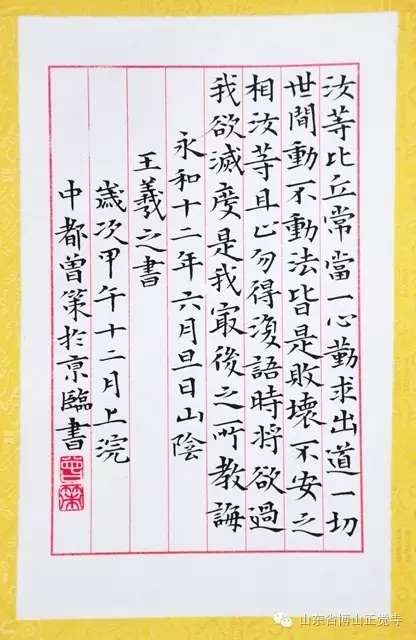 汝等比丘常當一心勤求出道一切
世間動不動法皆是敗壞不安之
相汝等且止勿得復語時將欲過
我欲滅度是我最後之所教誨
永和十二年六月旦日山陰
王羲之書
歲次甲午十二月上浣
中都曾策於京臨書
山东省博山正觉寺